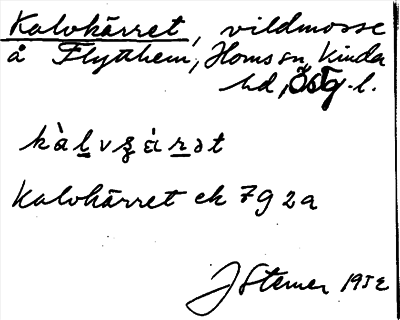 Kalvkärret, vildmosse
å Flytthem, Horns sn, Kinda
hd, Östg.l.
kàlvʂárət
Kalvkärret ek 7g 2a
J Sterner 1952